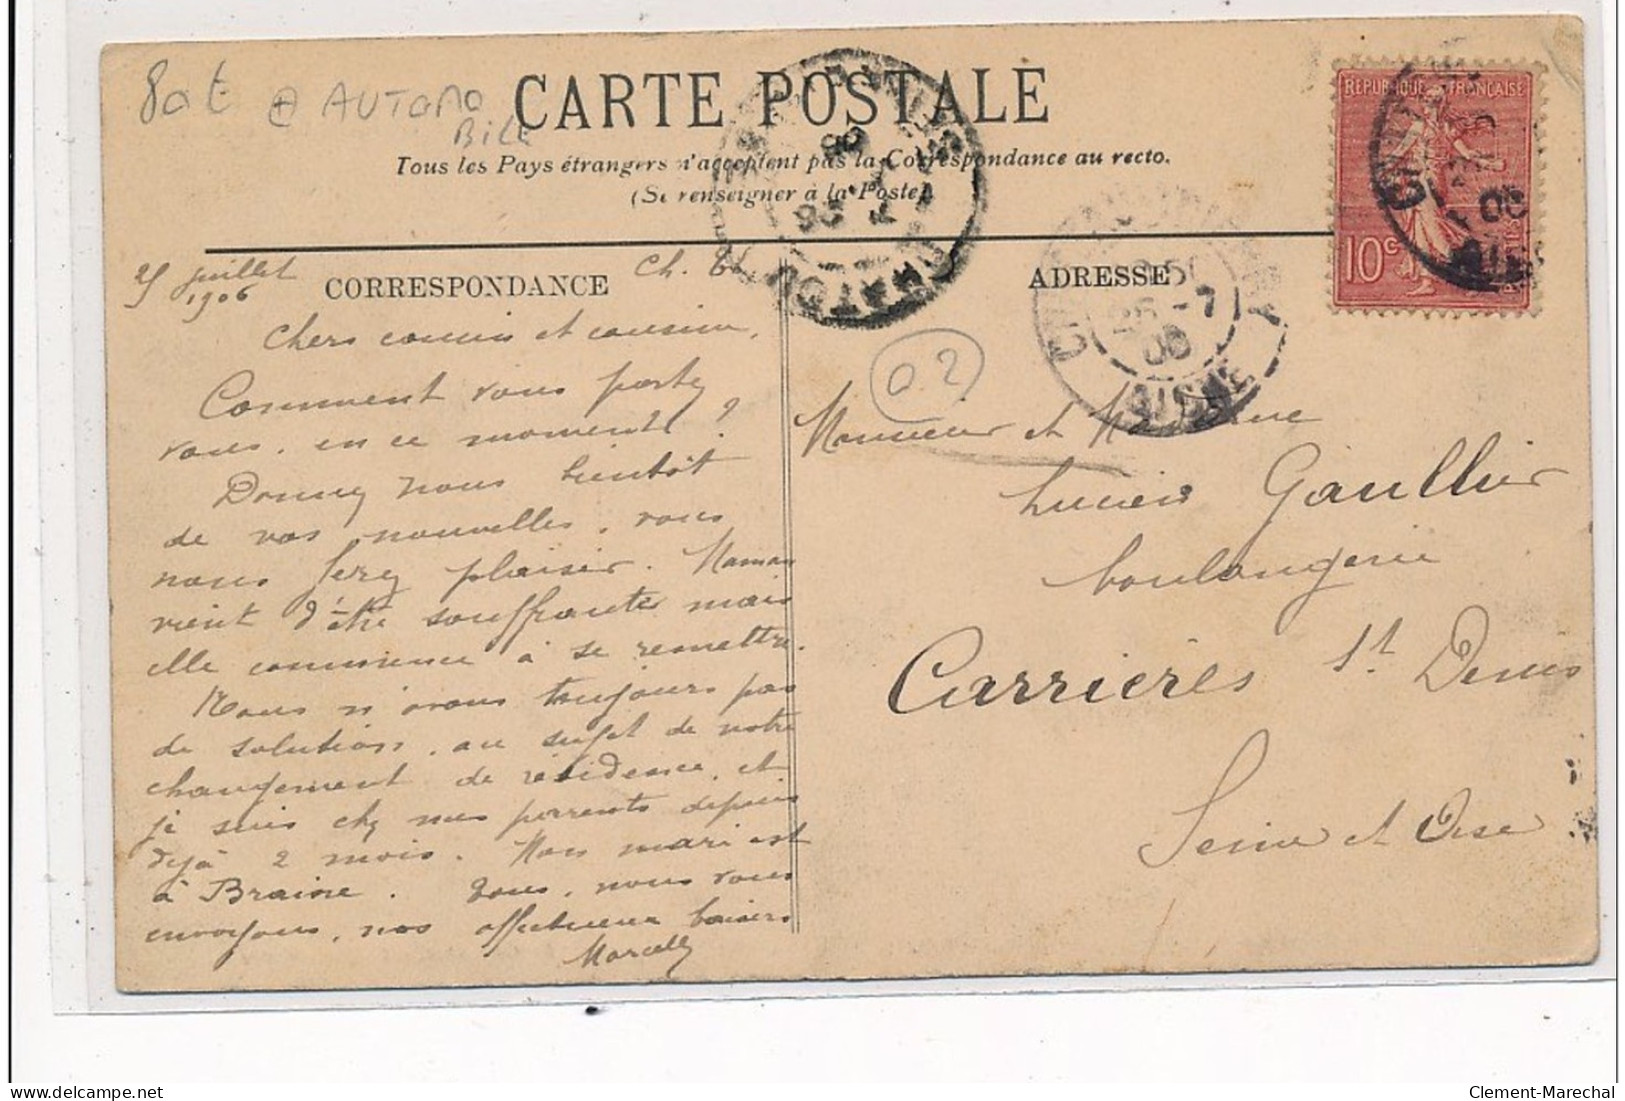 80 t @ AUTOMO
BILE
CARTE POSTALE
Tous les Pays étrangers n'acceptent pas la Correspondance au recto.
(Se renseigner à la Poste).
RÉPUBLIQUE FRANÇAISE
10c
POSTES
25 juillet
1906
CORRESPONDANCE
Ch.
Chers cousin et cousine,
Comment vous portez
vous, en ce moment ?
Donnez nous bientôt
de vos nouvelles, vous
nous ferez plaisir. Maman
vient d'être souffrante mais
elle commence à se remettre.
Nous n'avons toujours pas
de solution, au sujet de notre
changement de résidence, et
je suis chez mes parrents depuis
déjà 2 mois. Mon mari est
à Braine. Tous, nous vous
envoyons, nos affectueux baisers
Marcelle
ADRESSE
25 -7
06
AISNE
0.2
Monsieur et Madame
Lucien Gaullier
boulangerie
Carrières St Denis
Seine et Oise
Clement-Marechal